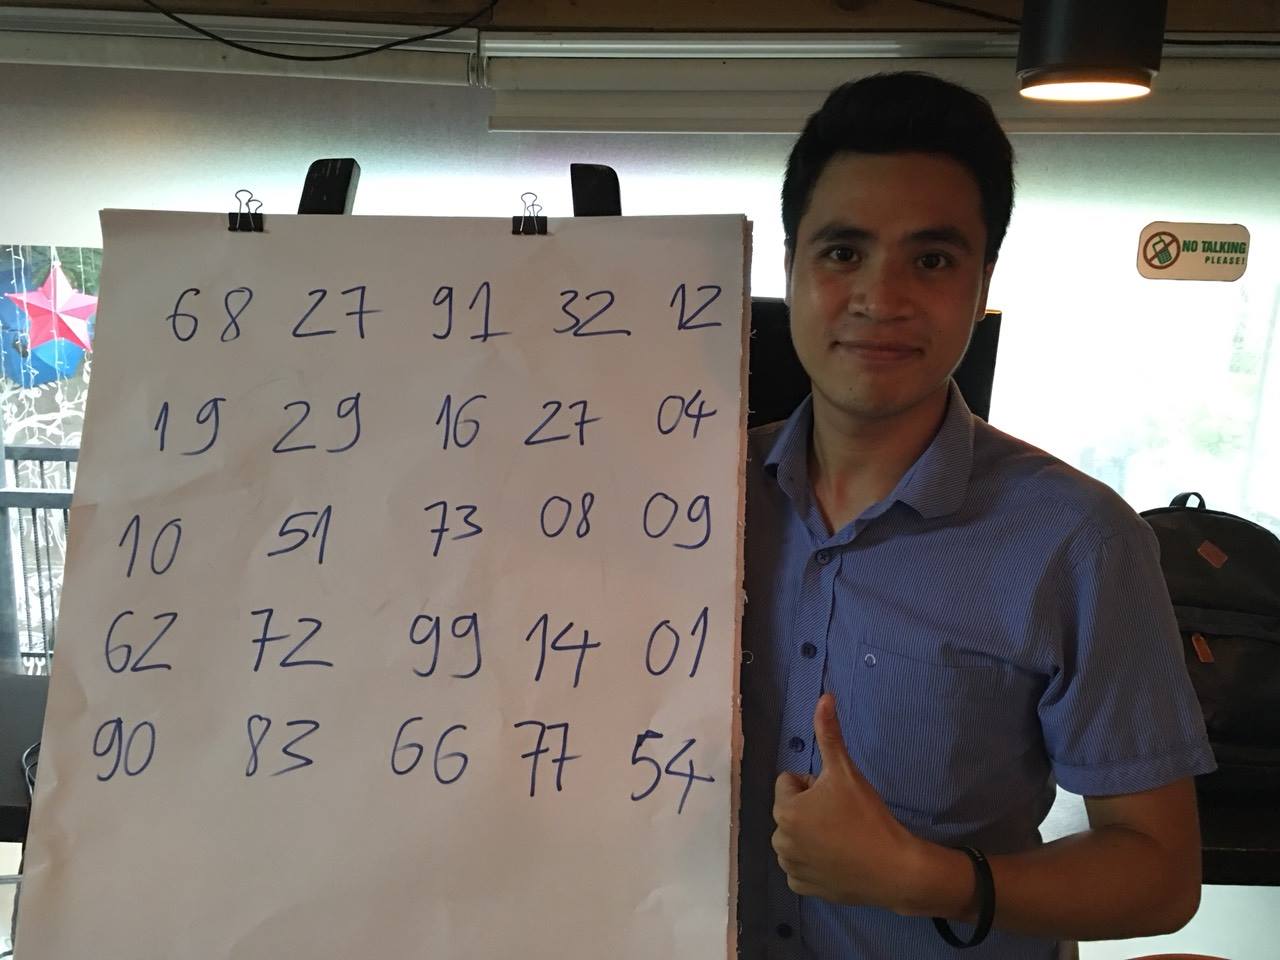 68 27 91 32 12
19 29 16 27 04
10 51 73 08 09
62 72 99 14 01
90 83 66 77 54
NO TALKING
PLEASE!